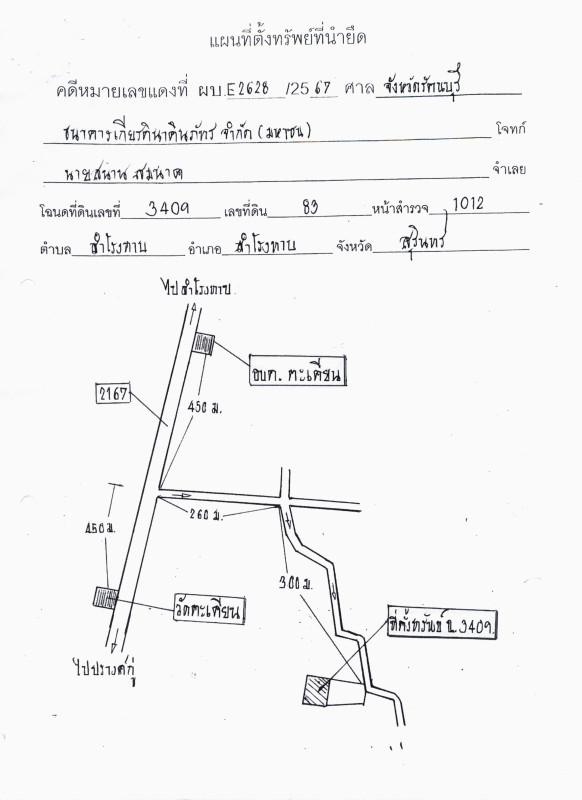 แผนที่ตั้งทรัพย์ที่นำยึด
คดีหมายเลขแดงที่ ผบ.E2628 /2567 ศาล จังหวัดรัตนบุรี
ธนาคารเกียรตินาคินภัทร จำกัด (มหาชน) โจทก์
นายสนาน สมนาค จำเลย
โฉนดที่ดินเลขที่ 3409 เลขที่ดิน 83 หน้าสำรวจ 1012
ตำบล สำโรงทาบ อำเภอ สำโรงทาบ จังหวัด สุรินทร์
ไปสำโรงทาบ
อบต. ตะเคียน
2167
450 ม.
260 ม.
450 ม.
300 ม.
วัดตะเคียน
ที่ตั้งทรัพย์ ฉ.3409.
ไปปรางค์กู่